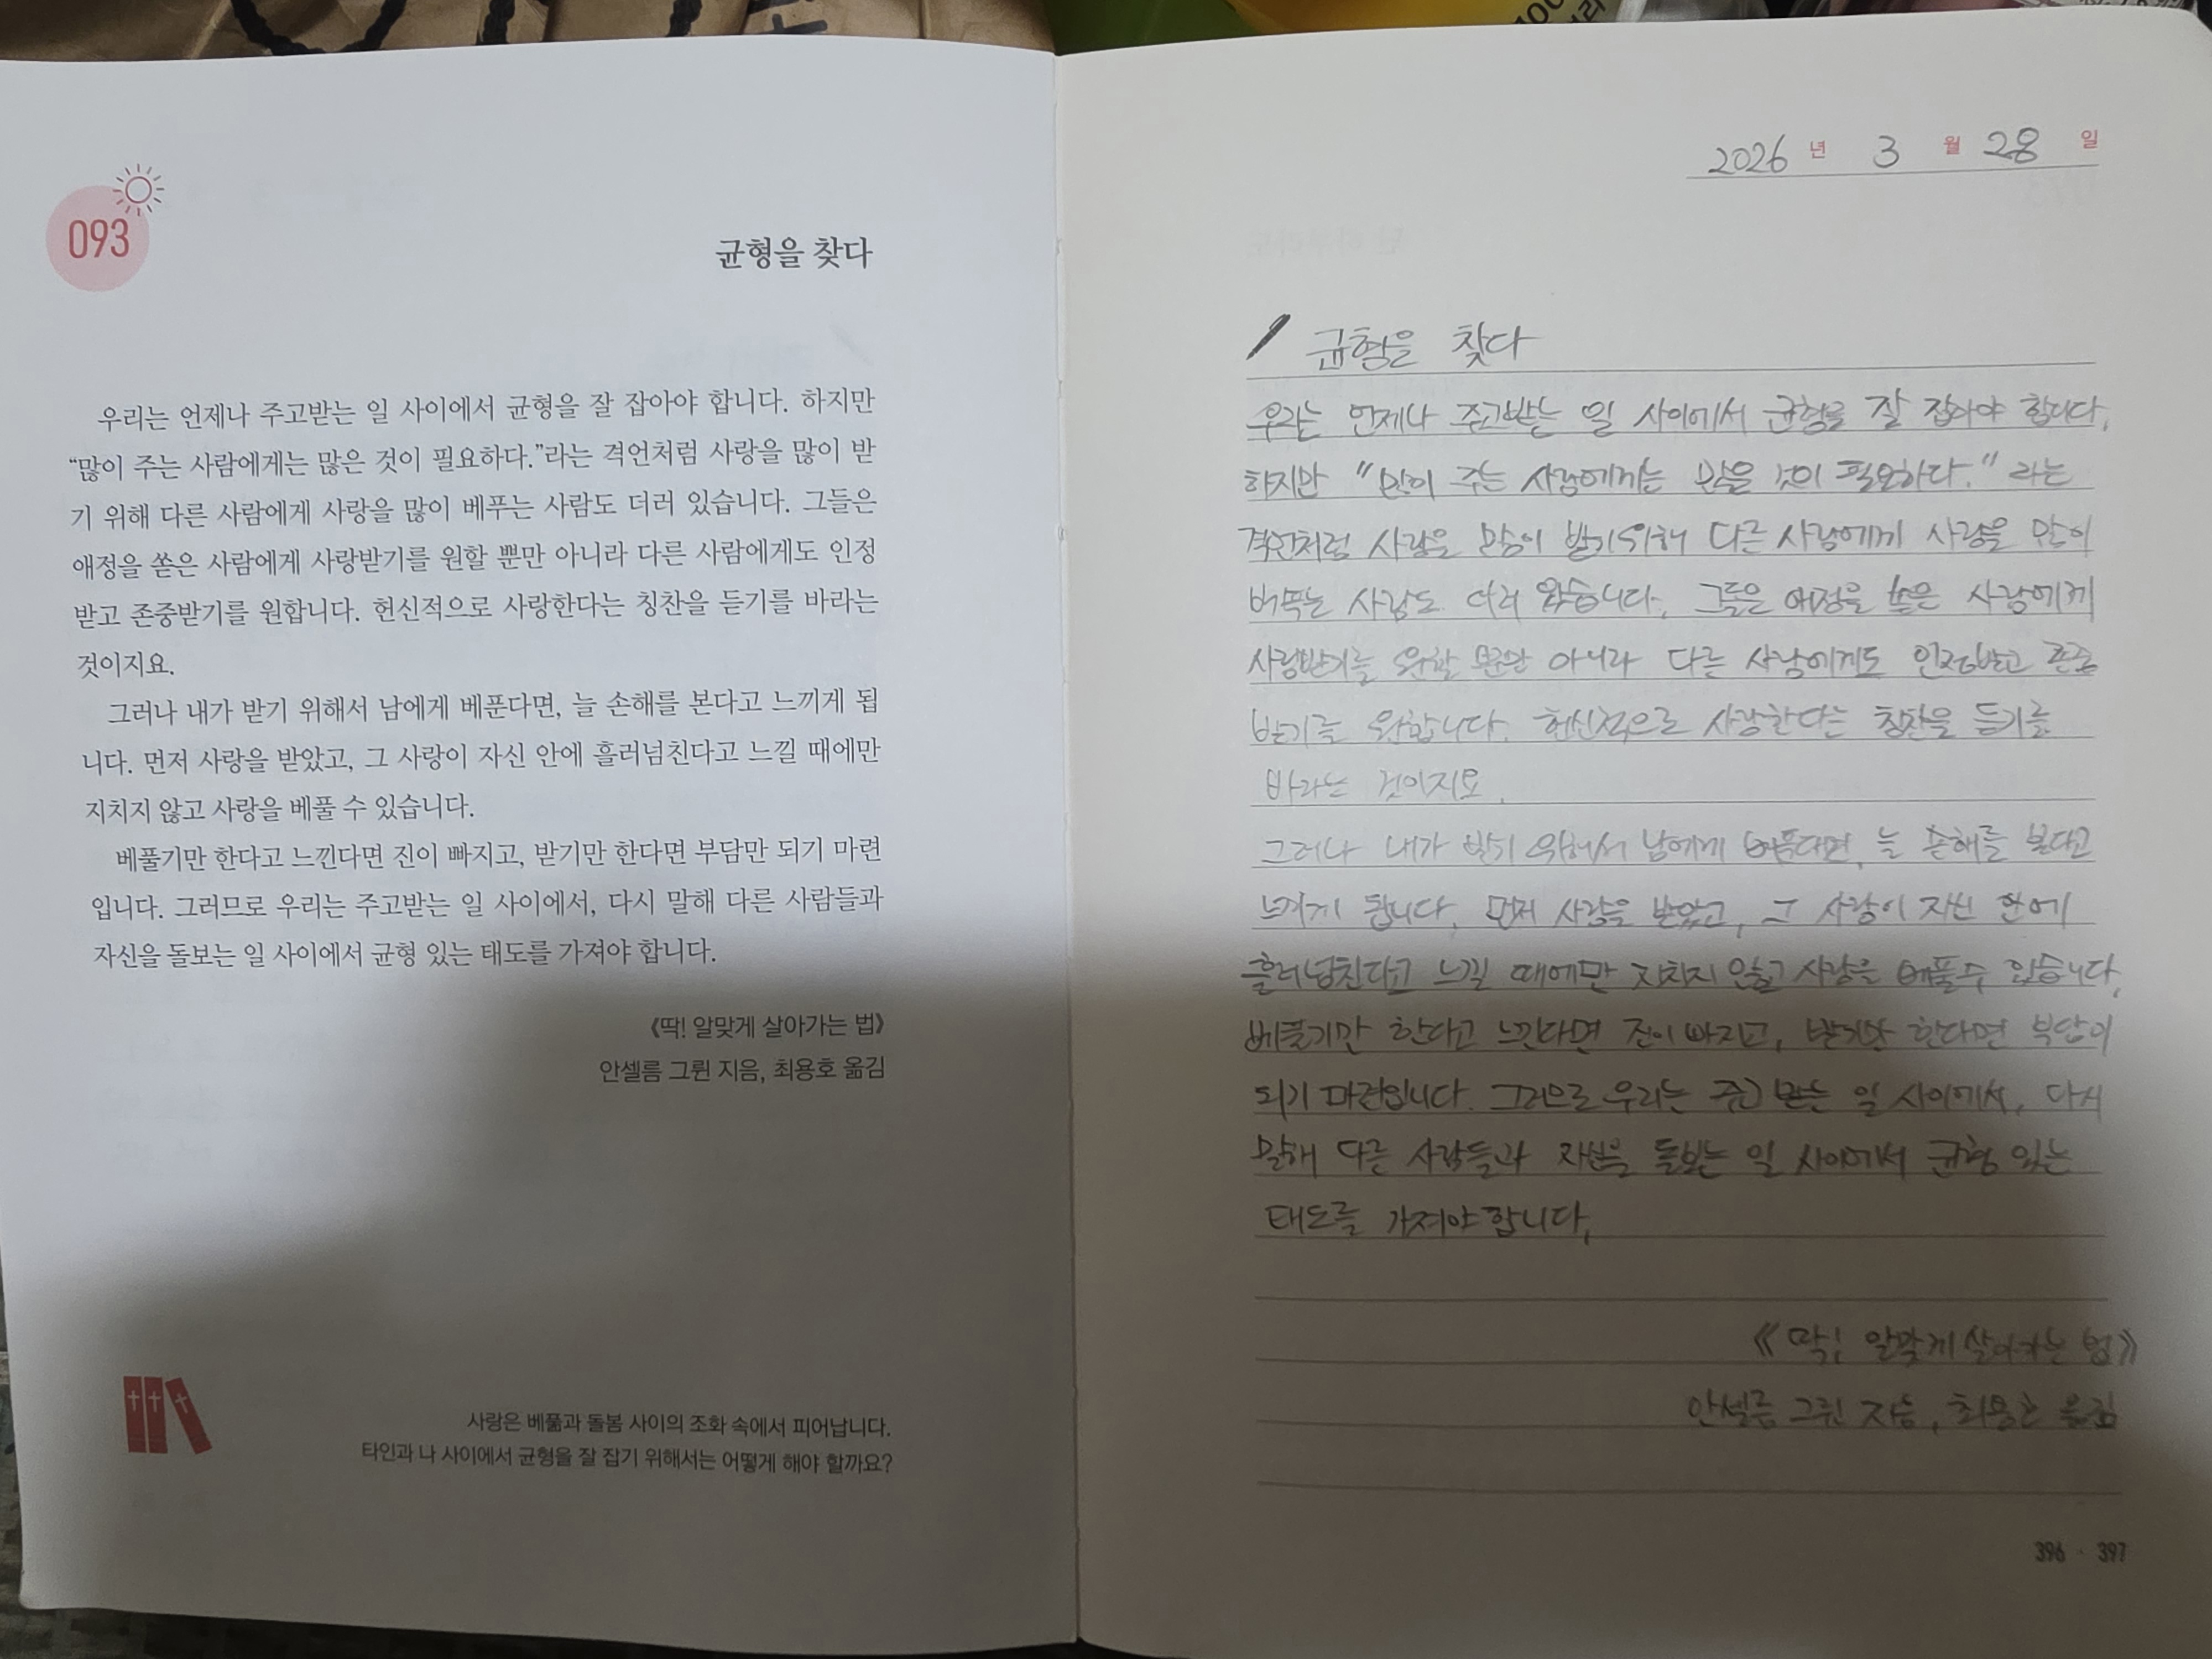 093
균형을 찾다
우리는 언제나 주고받는 일 사이에서 균형을 잘 잡아야 합니다. 하지만
“많이 주는 사람에게는 많은 것이 필요하다.”라는 격언처럼 사랑을 많이 받
기 위해 다른 사람에게 사랑을 많이 베푸는 사람도 더러 있습니다. 그들은
애정을 쏟은 사람에게 사랑받기를 원할 뿐만 아니라 다른 사람에게도 인정
받고 존중받기를 원합니다. 헌신적으로 사랑한다는 칭찬을 듣기를 바라는
것이지요.
그러나 내가 받기 위해서 남에게 베푼다면, 늘 손해를 본다고 느끼게 됩
니다. 먼저 사랑을 받았고, 그 사랑이 자신 안에 흘러넘친다고 느낄 때에만
지치지 않고 사랑을 베풀 수 있습니다.
베풀기만 한다고 느낀다면 진이 빠지고, 받기만 한다면 부담만 되기 마련
입니다. 그러므로 우리는 주고받는 일 사이에서, 다시 말해 다른 사람들과
자신을 돌보는 일 사이에서 균형 있는 태도를 가져야 합니다.
《딱! 알맞게 살아가는 법》
안셀름 그륀 지음, 최용호 옮김
사랑은 베풂과 돌봄 사이의 조화 속에서 피어납니다.
타인과 나 사이에서 균형을 잘 잡기 위해서는 어떻게 해야 할까요?
2026 년 3 월 28 일
균형을 찾다
우리는 언제나 주고받는 일 사이에서 균형을 잘 잡아야 합니다.
하지만 "많이 주는 사람에게는 많은 것이 필요하다." 라는
격언처럼 사랑을 많이 받기위해 다른 사람에게 사랑을 많이
베푸는 사람도 더러 있습니다. 그들은 애정을 쏟은 사람에게
사랑받기를 원할 뿐만 아니라 다른 사람에게도 인정받고 존중
받기를 원합니다. 헌신적으로 사랑한다는 칭찬을 듣기를
바라는 것이지요.
그러나 내가 받기 위해서 남에게 베푼다면, 늘 손해를 본다고
느끼게 됩니다. 먼저 사랑을 받았고, 그 사랑이 자신 안에
흘러넘친다고 느낄 때에만 지치지 않고 사랑을 베풀수 있습니다.
베풀기만 한다고 느낀다면 진이 빠지고, 받기만 한다면 부담이
되기 마련입니다. 그러므로 우리는 주고 받는 일 사이에서, 다시
말해 다른 사람들과 자신을 돌보는 일 사이에서 균형 있는
태도를 가져야 합니다.
《딱! 알맞게 살아가는 법》
안셀름 그륀 지음, 최용호 옮김
396 · 397